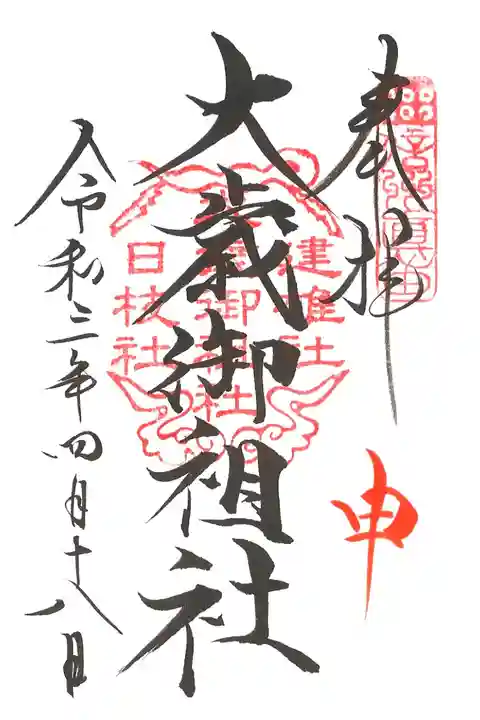 奉拝
申
大歳御祖社
建雄社
大歳御祖社
日枝社
令和三年四月十八日